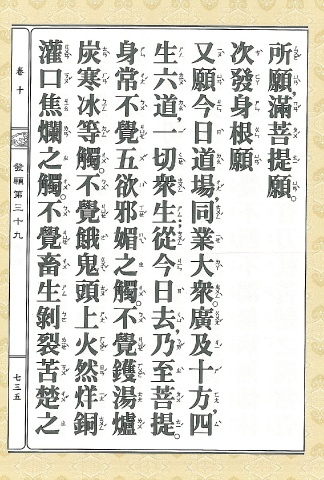 所願,滿菩提願。
次發身根願
又願今日道場,同業大衆,廣及十方,四
生六道,一切衆生,從今日去,乃至菩提。
身常不覺五欲邪媚之觸。不覺鑊湯爐
炭寒冰等觸。不覺餓鬼頭上火然烊銅
灌口焦爛之觸。不覺畜生剝裂苦楚之
卷十
發願第三十九
七三五